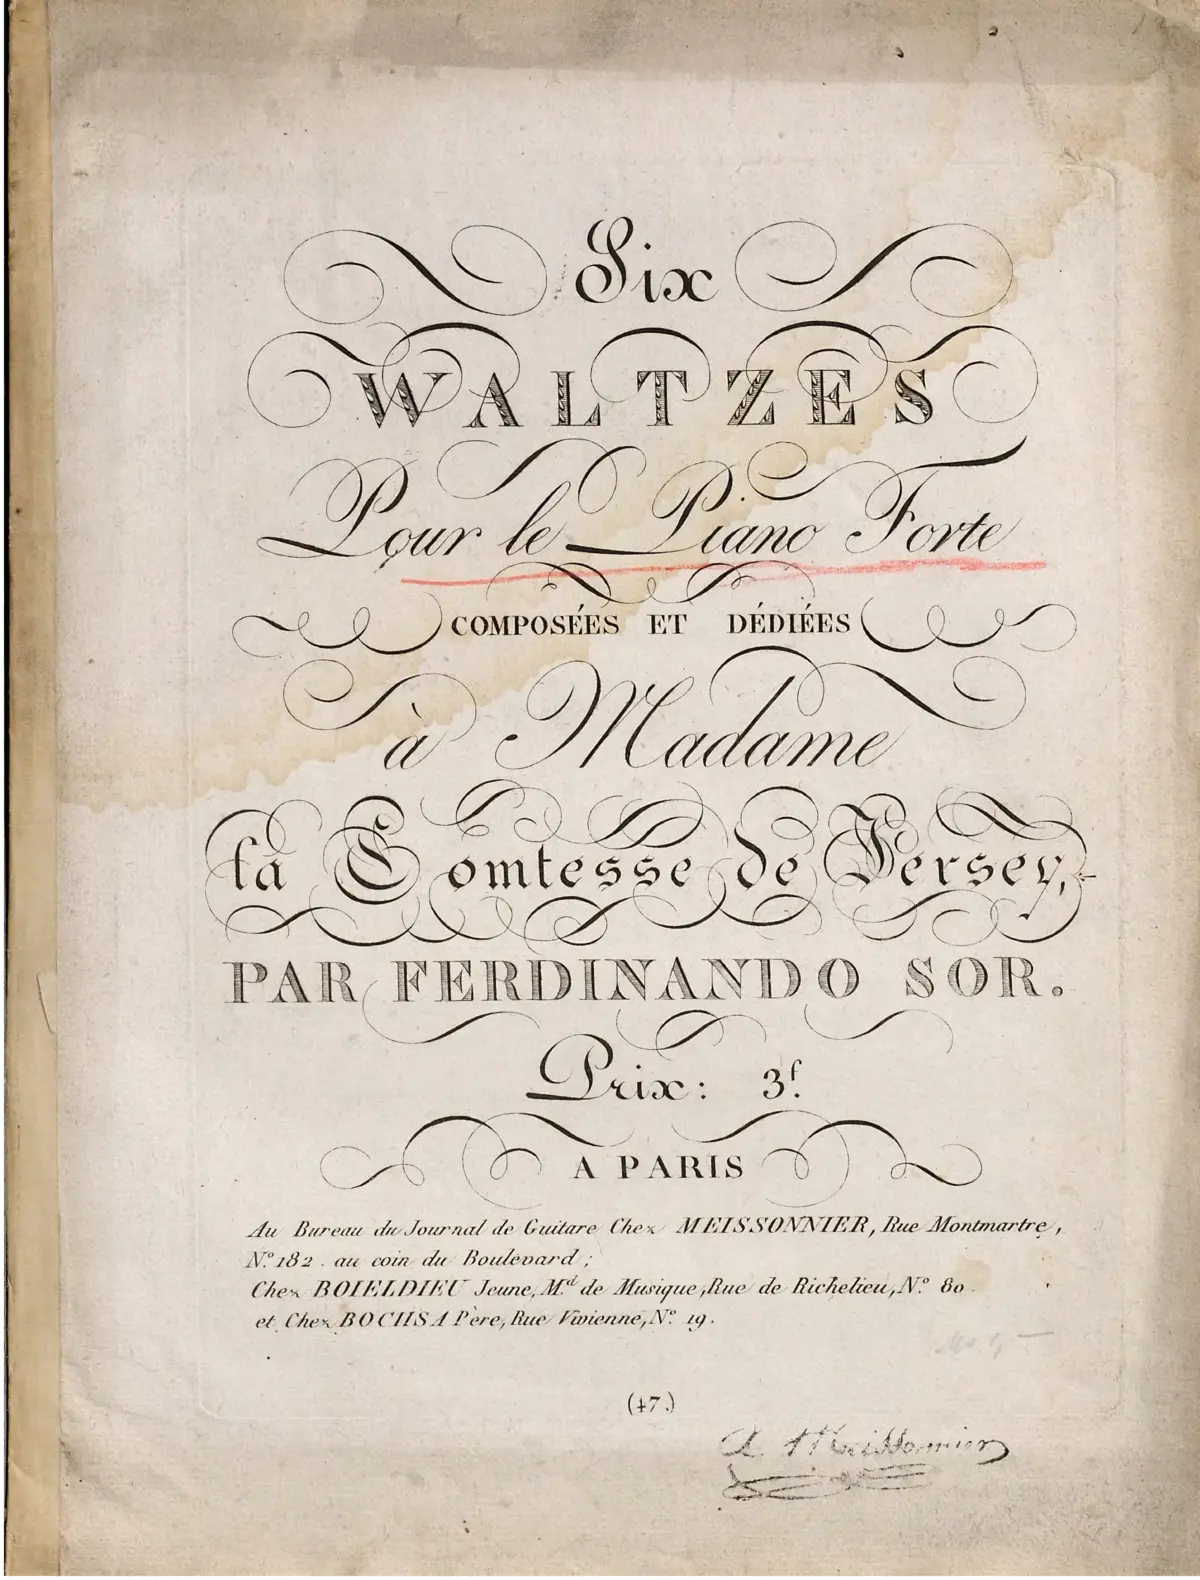 Six
WALTZES
Pour le Piano Forte
COMPOSÉES ET DÉDIÉES
à Madame
la Comtesse de Jersey,
PAR FERDINANDO SOR.
Prix: 3f.
A PARIS
Au Bureau du Journal de Guitare Chez MEISSONNIER, Rue Montmartre,
N.º 182. au coin du Boulevard;
Chez BOIELDIEU Jeune, M.d de Musique, Rue de Richelieu, N.º 80.
et Chez BOCHSA Père, Rue Vivienne, N.º 19.
(47.)
A. Meissonnier